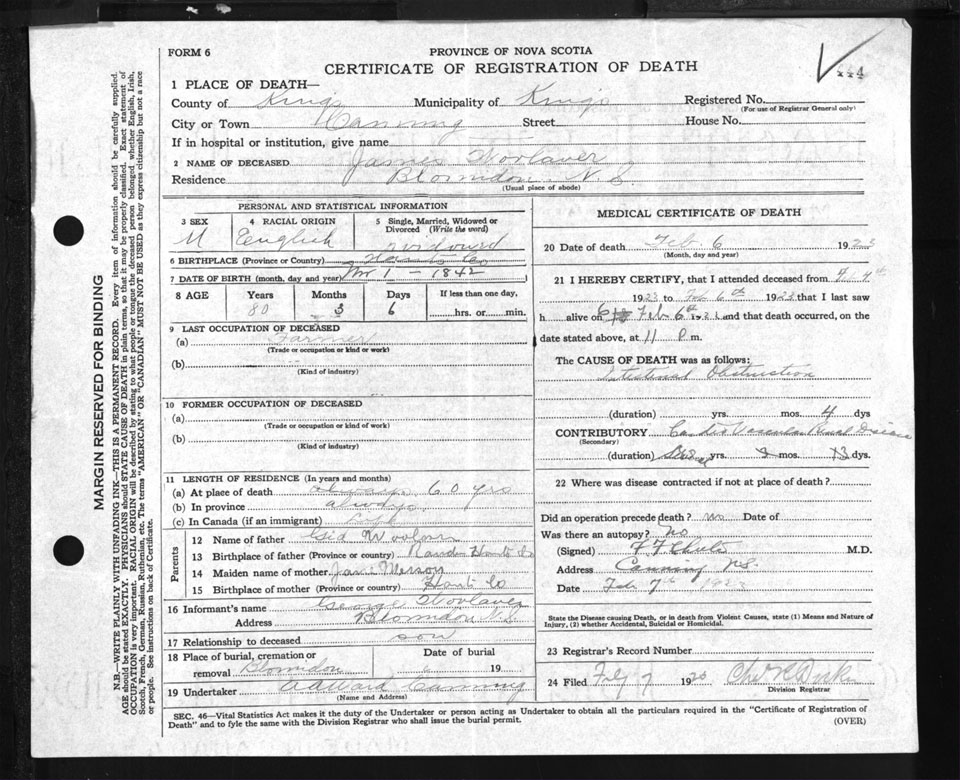 FORM 6
PROVINCE OF NOVA SCOTIA
CERTIFICATE OF REGISTRATION OF DEATH
444
1 PLACE OF DEATH—
County of Kings Municipality of Kings Registered No.
(For use of Registrar General only)
City or Town Canning Street House No.
If in hospital or institution, give name
2 NAME OF DECEASED James Woolaver
Residence Blomidon N.S.
(Usual place of abode)
PERSONAL AND STATISTICAL INFORMATION
3 SEX 4 RACIAL ORIGIN 5 Single, Married, Widowed or Divorced (Write the word)
M English widowed
6 BIRTHPLACE (Province or Country) Hants Co
7 DATE OF BIRTH (month, day and year) 1 - 1842
8 AGE Years Months Days If less than one day,
80 3 6 hrs. or min.
9 LAST OCCUPATION OF DECEASED
(a) Farmer
(Trade or occupation or kind or work)
(b)
(Kind of industry)
10 FORMER OCCUPATION OF DECEASED
(a)
(Trade or occupation or kind or work)
(b)
(Kind of industry)
11 LENGTH OF RESIDENCE (In years and months)
(a) At place of death 60 yrs
(b) In province always
(c) In Canada (if an immigrant)
Parents
12 Name of father Woolaver
13 Birthplace of father (Province or country) Rawdon Hants Co
14 Maiden name of mother Jane
15 Birthplace of mother (Province or country) Hants Co
16 Informant's name George Woolaver
Address Blomidon N.S
17 Relationship to deceased son
18 Place of burial, cremation or removal Blomidon Date of burial 19
19 Undertaker Canning
(Name and Address)
MEDICAL CERTIFICATE OF DEATH
20 Date of death Feb. 6 1923
(Month, day and year)
21 I HEREBY CERTIFY, that I attended deceased from
1923 to Feb 6th 1923 that I last saw
h alive on Feb 6th 1923 and that death occurred, on the
date stated above, at 11 P m.
The CAUSE OF DEATH was as follows:
Intestinal Obstruction
(duration) yrs. mos. 4 dys
CONTRIBUTORY Cardio Vascular Renal Disease
(Secondary)
(duration) Several yrs. mos. dys.
22 Where was disease contracted if not at place of death?
Did an operation precede death? no Date of
Was there an autopsy? no
(Signed) M.D.
Address Canning N.S.
Date Feb 7th 1923
State the Disease causing Death, or in death from Violent Causes, state (1) Means and Nature of Injury, (2) whether Accidental, Suicidal or Homicidal.
23 Registrar's Record Number
24 Filed Feb 7 19
Division Registrar
SEC. 46—Vital Statistics Act makes it the duty of the Undertaker or person acting as Undertaker to obtain all the particulars required in the "Certificate of Registration of
Death" and to fyle the same with the Division Registrar who shall issue the burial permit.
(OVER)
MARGIN RESERVED FOR BINDING
N.B.—WRITE PLAINLY WITH UNFADING INK—THIS IS A PERMANENT RECORD. Every item of information should be carefully supplied.
AGE should be stated EXACTLY. PHYSICIANS should STATE CAUSE OF DEATH in plain terms, so that it may be properly classified. Exact statement of
OCCUPATION is very important. RACIAL ORIGIN will be described by stating to what people or tongue the deceased person belonged whether English, Irish,
Scotch, French, German, Russian, Ruthenian, etc. The terms "AMERICAN" OR "CANADIAN" MUST NOT BE USED as they express citizenship but not a race
or people. See instructions on back of Certificate.